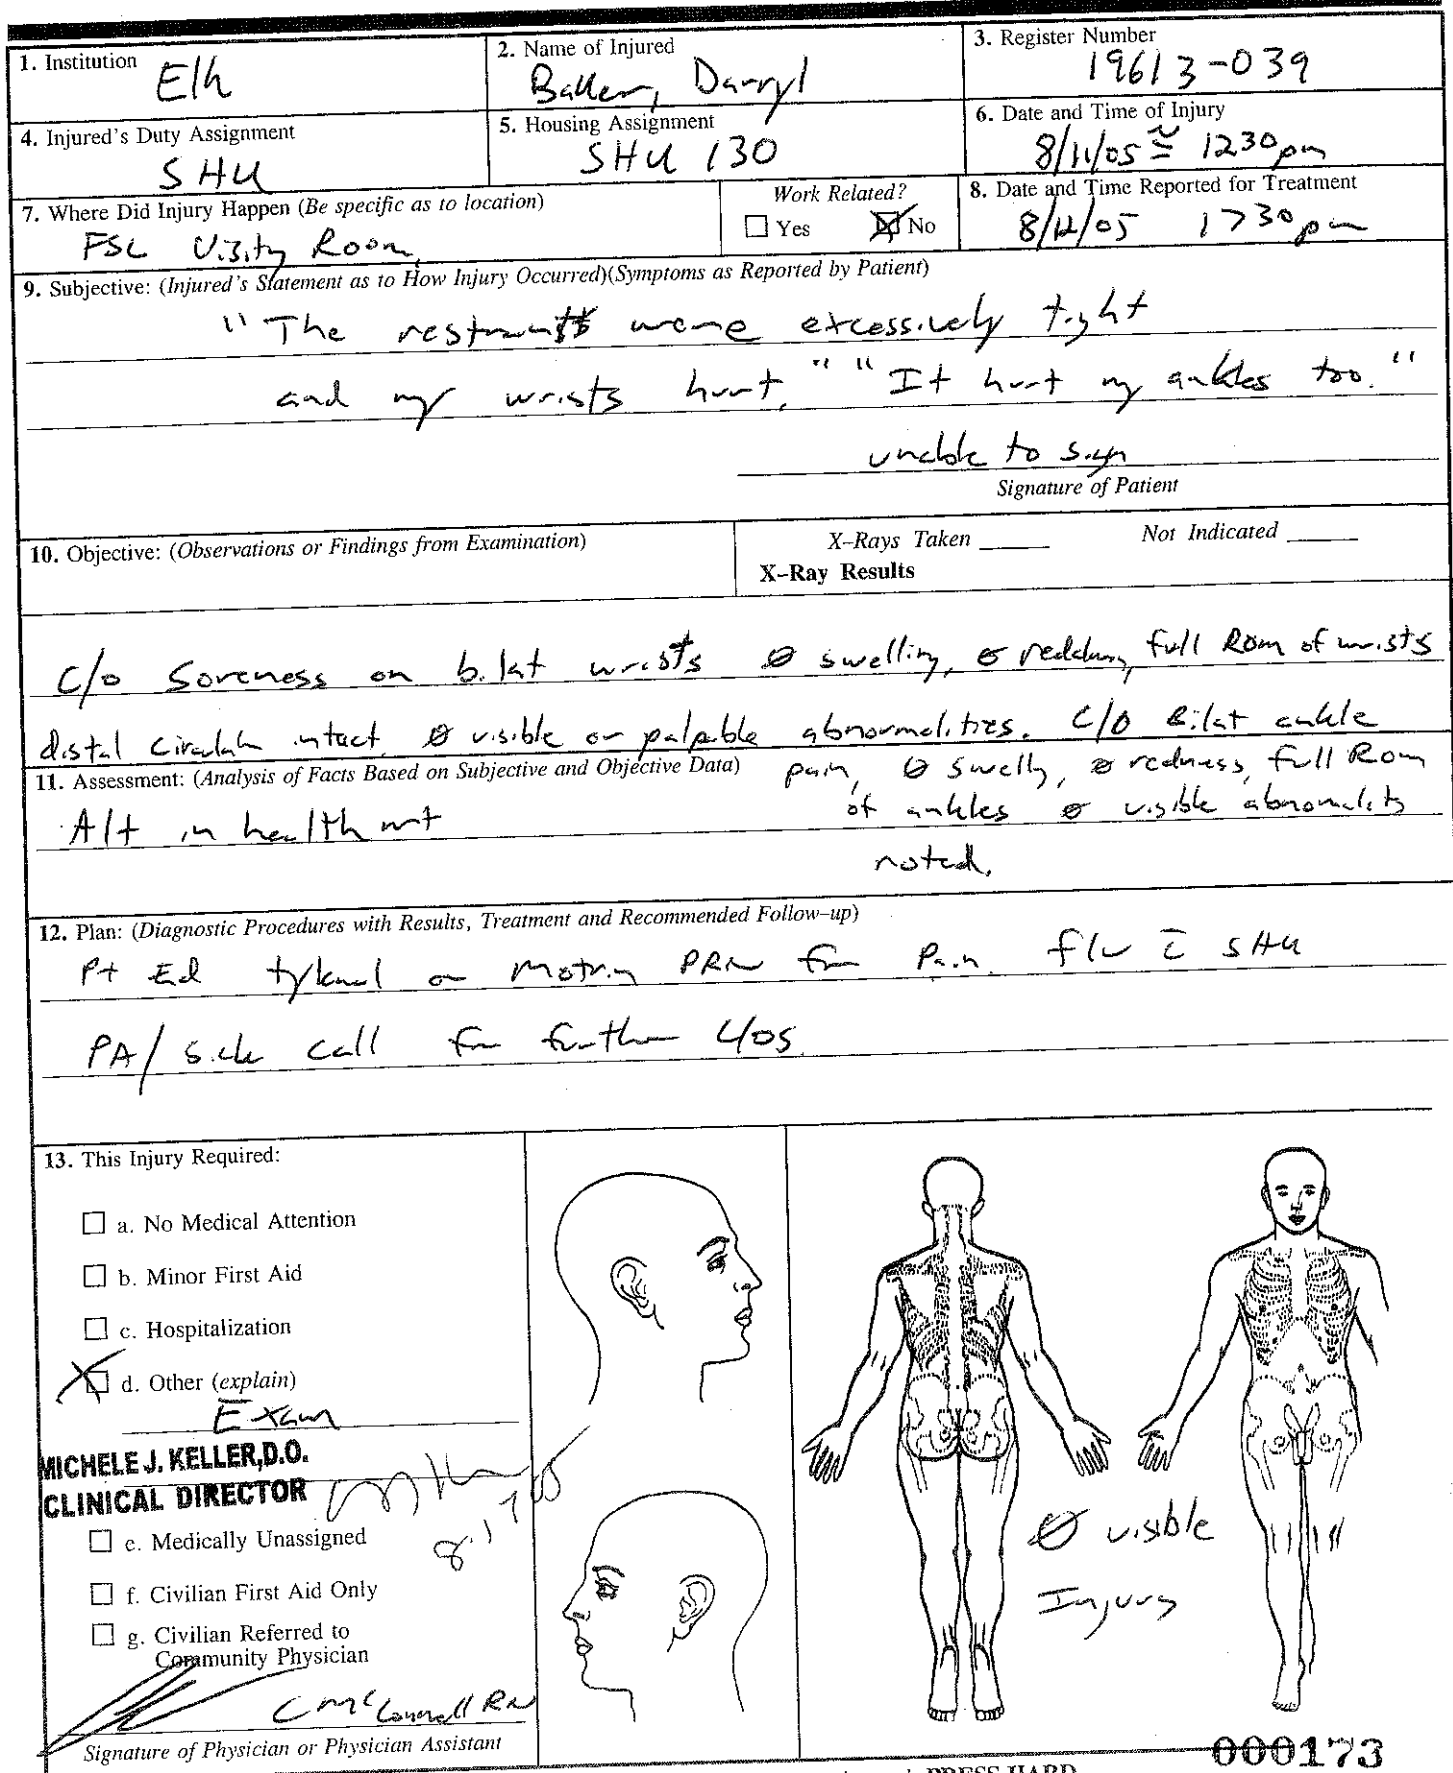 1. Institution
Elk
2. Name of Injured
Darryl
3. Register Number
19613-039
4. Injured's Duty Assignment
SHU
5. Housing Assignment
SHU 130
6. Date and Time of Injury
8/11/05 ≅ 1230 pm
7. Where Did Injury Happen (Be specific as to location)
FSL Visity Room
Work Related?
☐ Yes ☒ No
8. Date and Time Reported for Treatment
1730 pm
9. Subjective: (Injured's Statement as to How Injury Occurred)(Symptoms as Reported by Patient)
"The restraints were excessively tight
and my wrists hurt." "It hurt my ankles too."
unable to sign
Signature of Patient
10. Objective: (Observations or Findings from Examination)
X-Rays Taken ____ Not Indicated ____
X-Ray Results
C/o Soreness on bilat wrists Ø swelling, Ø redness, full ROM of wrists
distal circulation intact Ø visible or palpable abnormalities. C/O Bilat ankle
pain, Ø swelling, Ø redness, full ROM
of ankles Ø visible abnormality
noted.
11. Assessment: (Analysis of Facts Based on Subjective and Objective Data)
Alt in health mt
12. Plan: (Diagnostic Procedures with Results, Treatment and Recommended Follow-up)
Pt Ed tylenol or Motrin PRN for Pain. f/u c̄ SHU
PA/ sick call for further c/os.
13. This Injury Required:
☐ a. No Medical Attention
☐ b. Minor First Aid
☐ c. Hospitalization
☒ d. Other (explain)
Exam
MICHELE J. KELLER, D.O.
CLINICAL DIRECTOR
☐ e. Medically Unassigned
☐ f. Civilian First Aid Only
☐ g. Civilian Referred to
Community Physician
C McConnell RN
Signature of Physician or Physician Assistant
Ø visible
Injury
000173
PRESS HARD